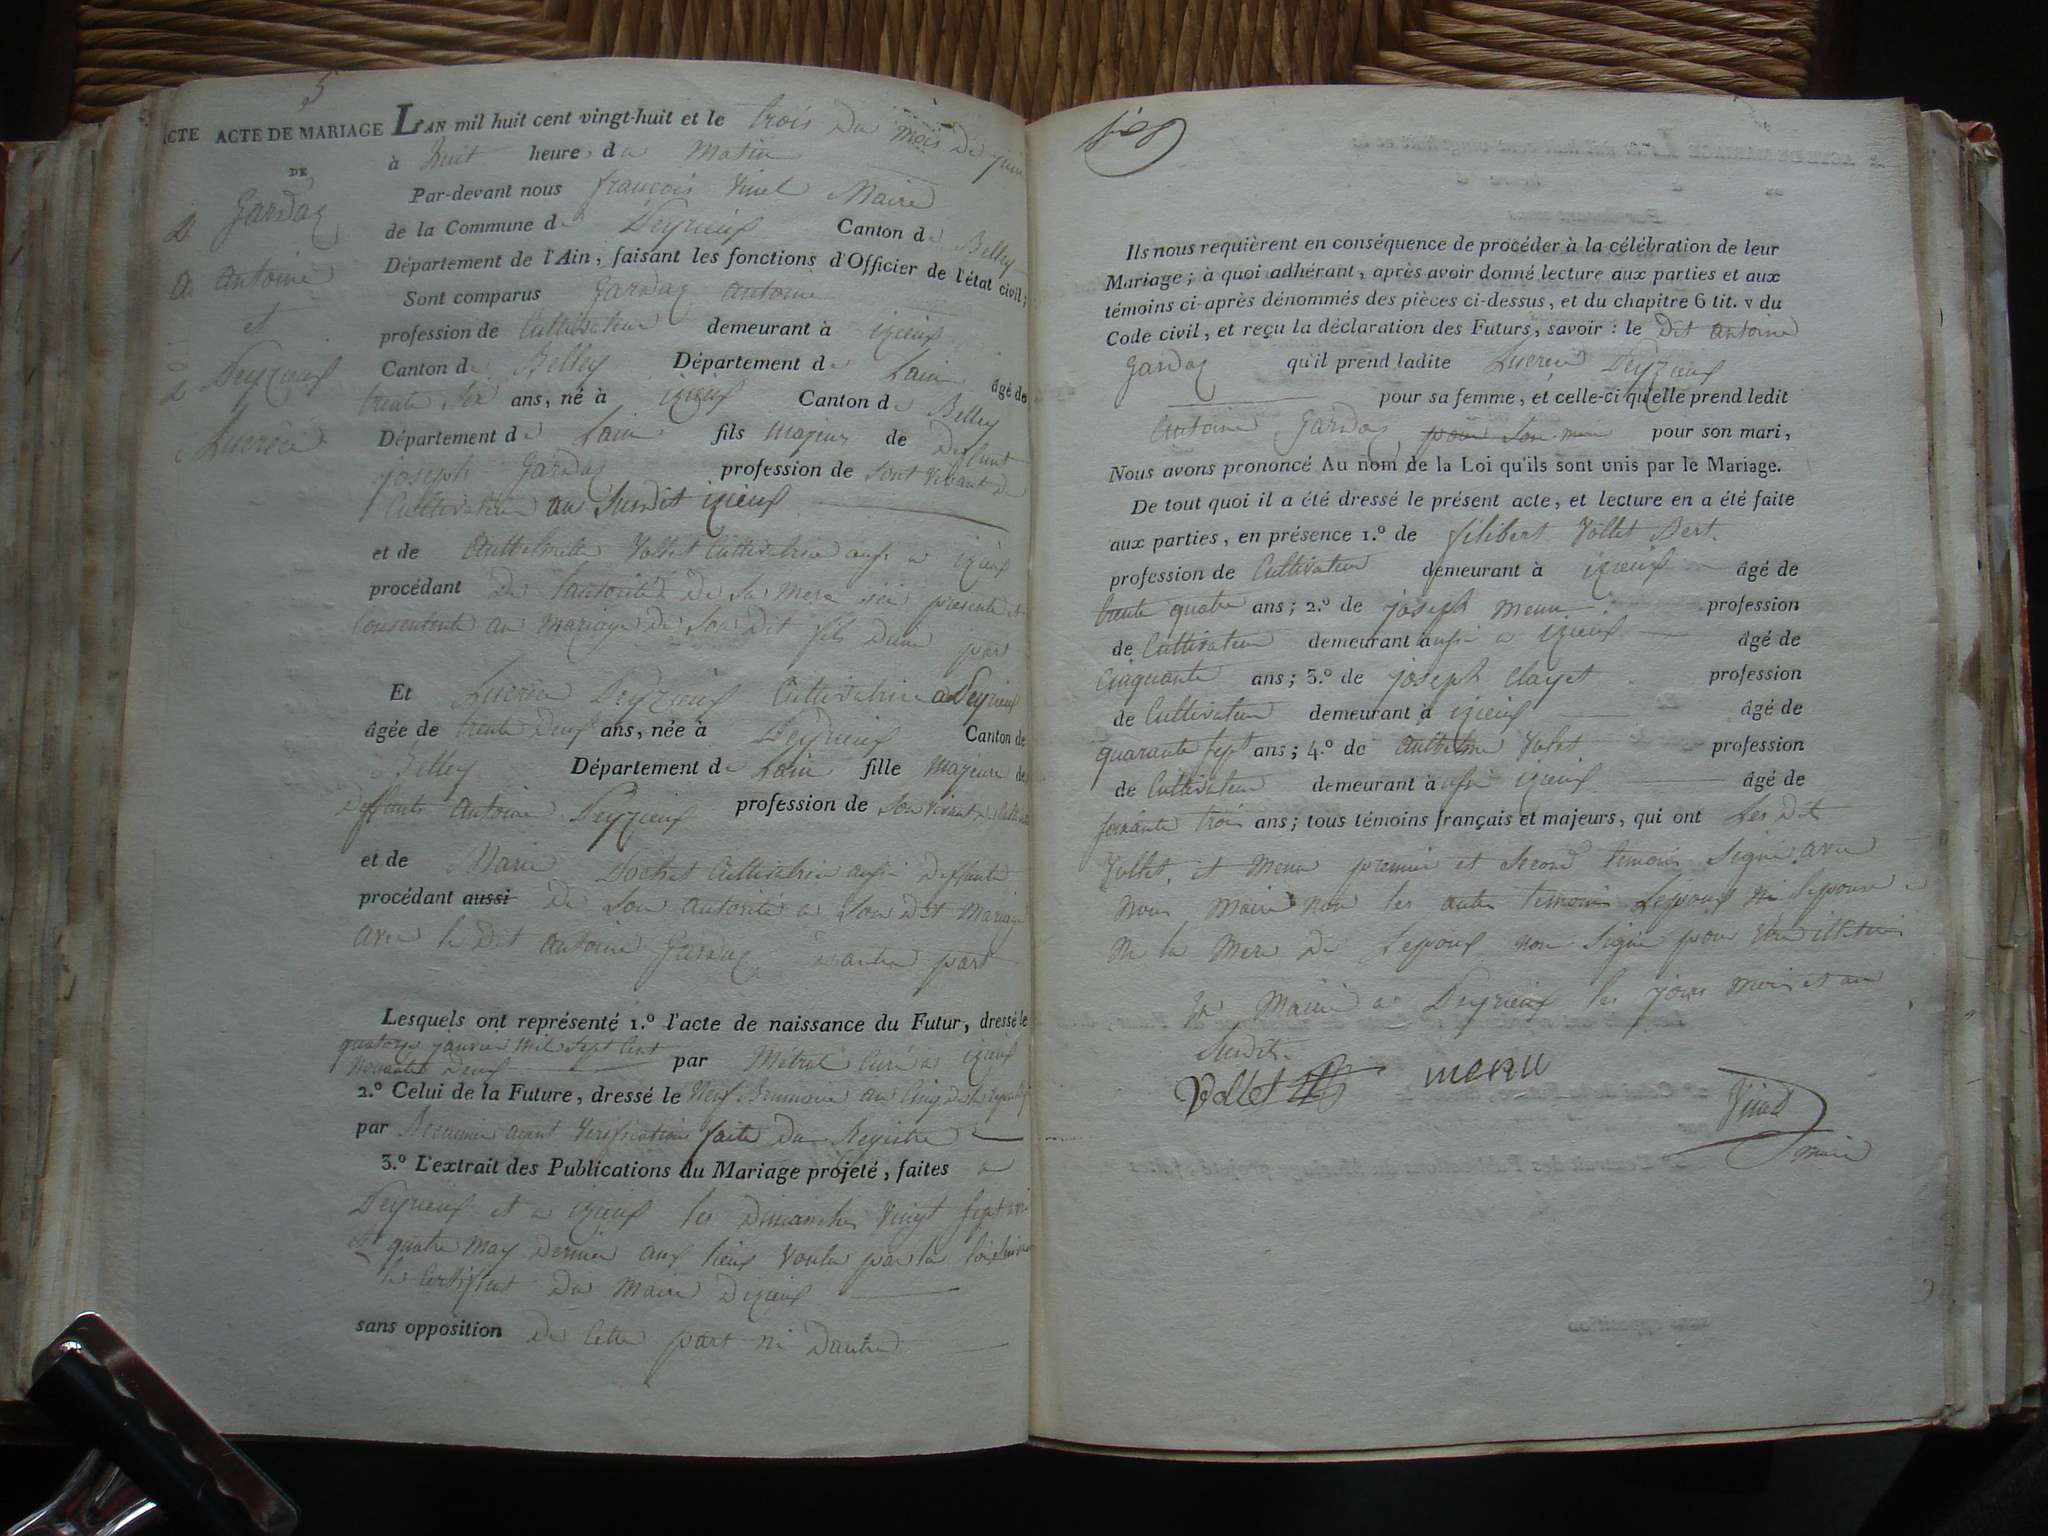 5
ACTE ACTE DE MARIAGE L'AN mil huit cent vingt-huit et le trois du mois de juin
DE
à huit heure, du Matin
Par-devant nous françois Vinet Maire
Gardaz
de la Commune de Peyrieux Canton de Belley
Antoine
Département de l'Ain, faisant les fonctions d'Officier de l'état civil;
et
Sont comparus Gardaz Antoine
profession de Cultivateur demeurant à izieux
Peyzieux
Canton de Belley Département de Lain âgé de
trente six ans, né à izieux Canton de Belley
Lucrèce
Département de Lain fils majeur de Deffunt
joseph Gardaz profession de sont vivant de
Cultivateur au Susdit izieux
et de Anthelmette Vollet Cultivatrice aussi a izieux
procédant de Lautorité de Sa mere ici presente et
Consentente au mariage de Son dit fils Dune part
Et Lucrèce Peyzieux Cultivatrice a Peyrieux
âgée de trente Deux ans, née à Peyrieux Canton de
Belley Département de Lain fille Majeure de
Deffunts Antoine Peyzieux profession de Son vivant
et de Marie Cultivatrice aussi Deffunte
procédant aussi De Son autorité a Son Dit Mariage
avec le Dit Antoine Gardaz D'autre part
Lesquels ont représenté 1.º l'acte de naissance du Futur, dressé le
quatorze janvier Mil Sept Cent
Nonante Deux par curé a izieux
2.º Celui de la Future, dressé le Neuf Brumaire an Cinq
par ayant Verification faite du Registre
3.º L'extrait des Publications du Mariage projeté, faites a
Peyrieux et a izieux les Dimanches Vingt sept
et quatre May Dernier aux lieux Voulu par la loi
le Certificat Du Maire Dizieux
sans opposition de Cette part ni Dautre
Ils nous requièrent en conséquence de procéder à la célébration de leur
Mariage; à quoi adhérant, après avoir donné lecture aux parties et aux
témoins ci-après dénommés des pièces ci-dessus, et du chapitre 6 tit. v du
Code civil, et reçu la déclaration des Futurs, savoir: le Dit Antoine
Gardaz qu'il prend ladite Lucrèce Peyzieux
pour sa femme, et celle-ci qu'elle prend ledit
Antoine Gardaz pour Son mari pour son mari,
Nous avons prononcé Au nom de la Loi qu'ils sont unis par le Mariage.
De tout quoi il a été dressé le présent acte, et lecture en a été faite
aux parties, en présence 1.º de filibert Vollet Bert.
profession de Cultivateur demeurant à izieux âgé de
trente quatre ans; 2.º de joseph menu profession
de Cultivateur demeurant aussi a izieux âgé de
Cinquante ans; 3.º de joseph Clayet profession
de Cultivateur demeurant à izieux âgé de
quarante sept ans; 4.º de Anthelme Volet profession
de Cultivateur demeurant à aussi izieux âgé de
soixante trois ans; tous témoins français et majeurs, qui ont Les Dit
Vollet et Menu premier et Second temoins Signé avec
nous maire non les autre temoins Lepoux ni Lepouse
ni la Mere de Lepoux non Signé pour être illitérés
a Peyrieux les jours mois et an
Susdit.
Vollet menu Vinet
maire